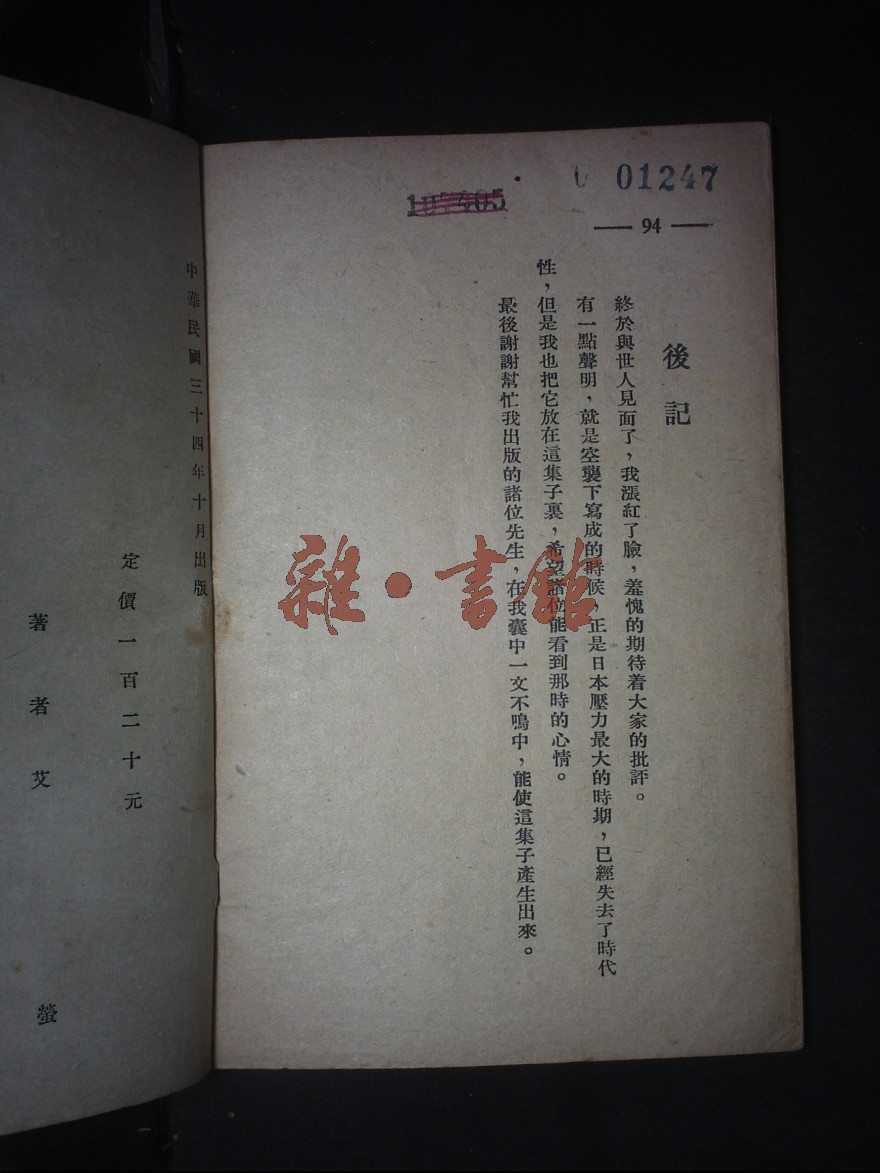 01247
— 94 —
後記
終於與世人見面了，我漲紅了臉，羞愧的期待着大家的批評。
有一點聲明，就是空襲下寫成的時候，正是日本壓力最大的時期，已經失去了時代
性，但是我也把它放在這集子裏，希望諸位能看到那時的心情。
最後謝謝幫忙我出版的諸位先生，在我囊中一文不鳴中，能使這集子產生出來。
中華民國三十四年十月出版
定價一百二十元
著者艾螢
雜·書館